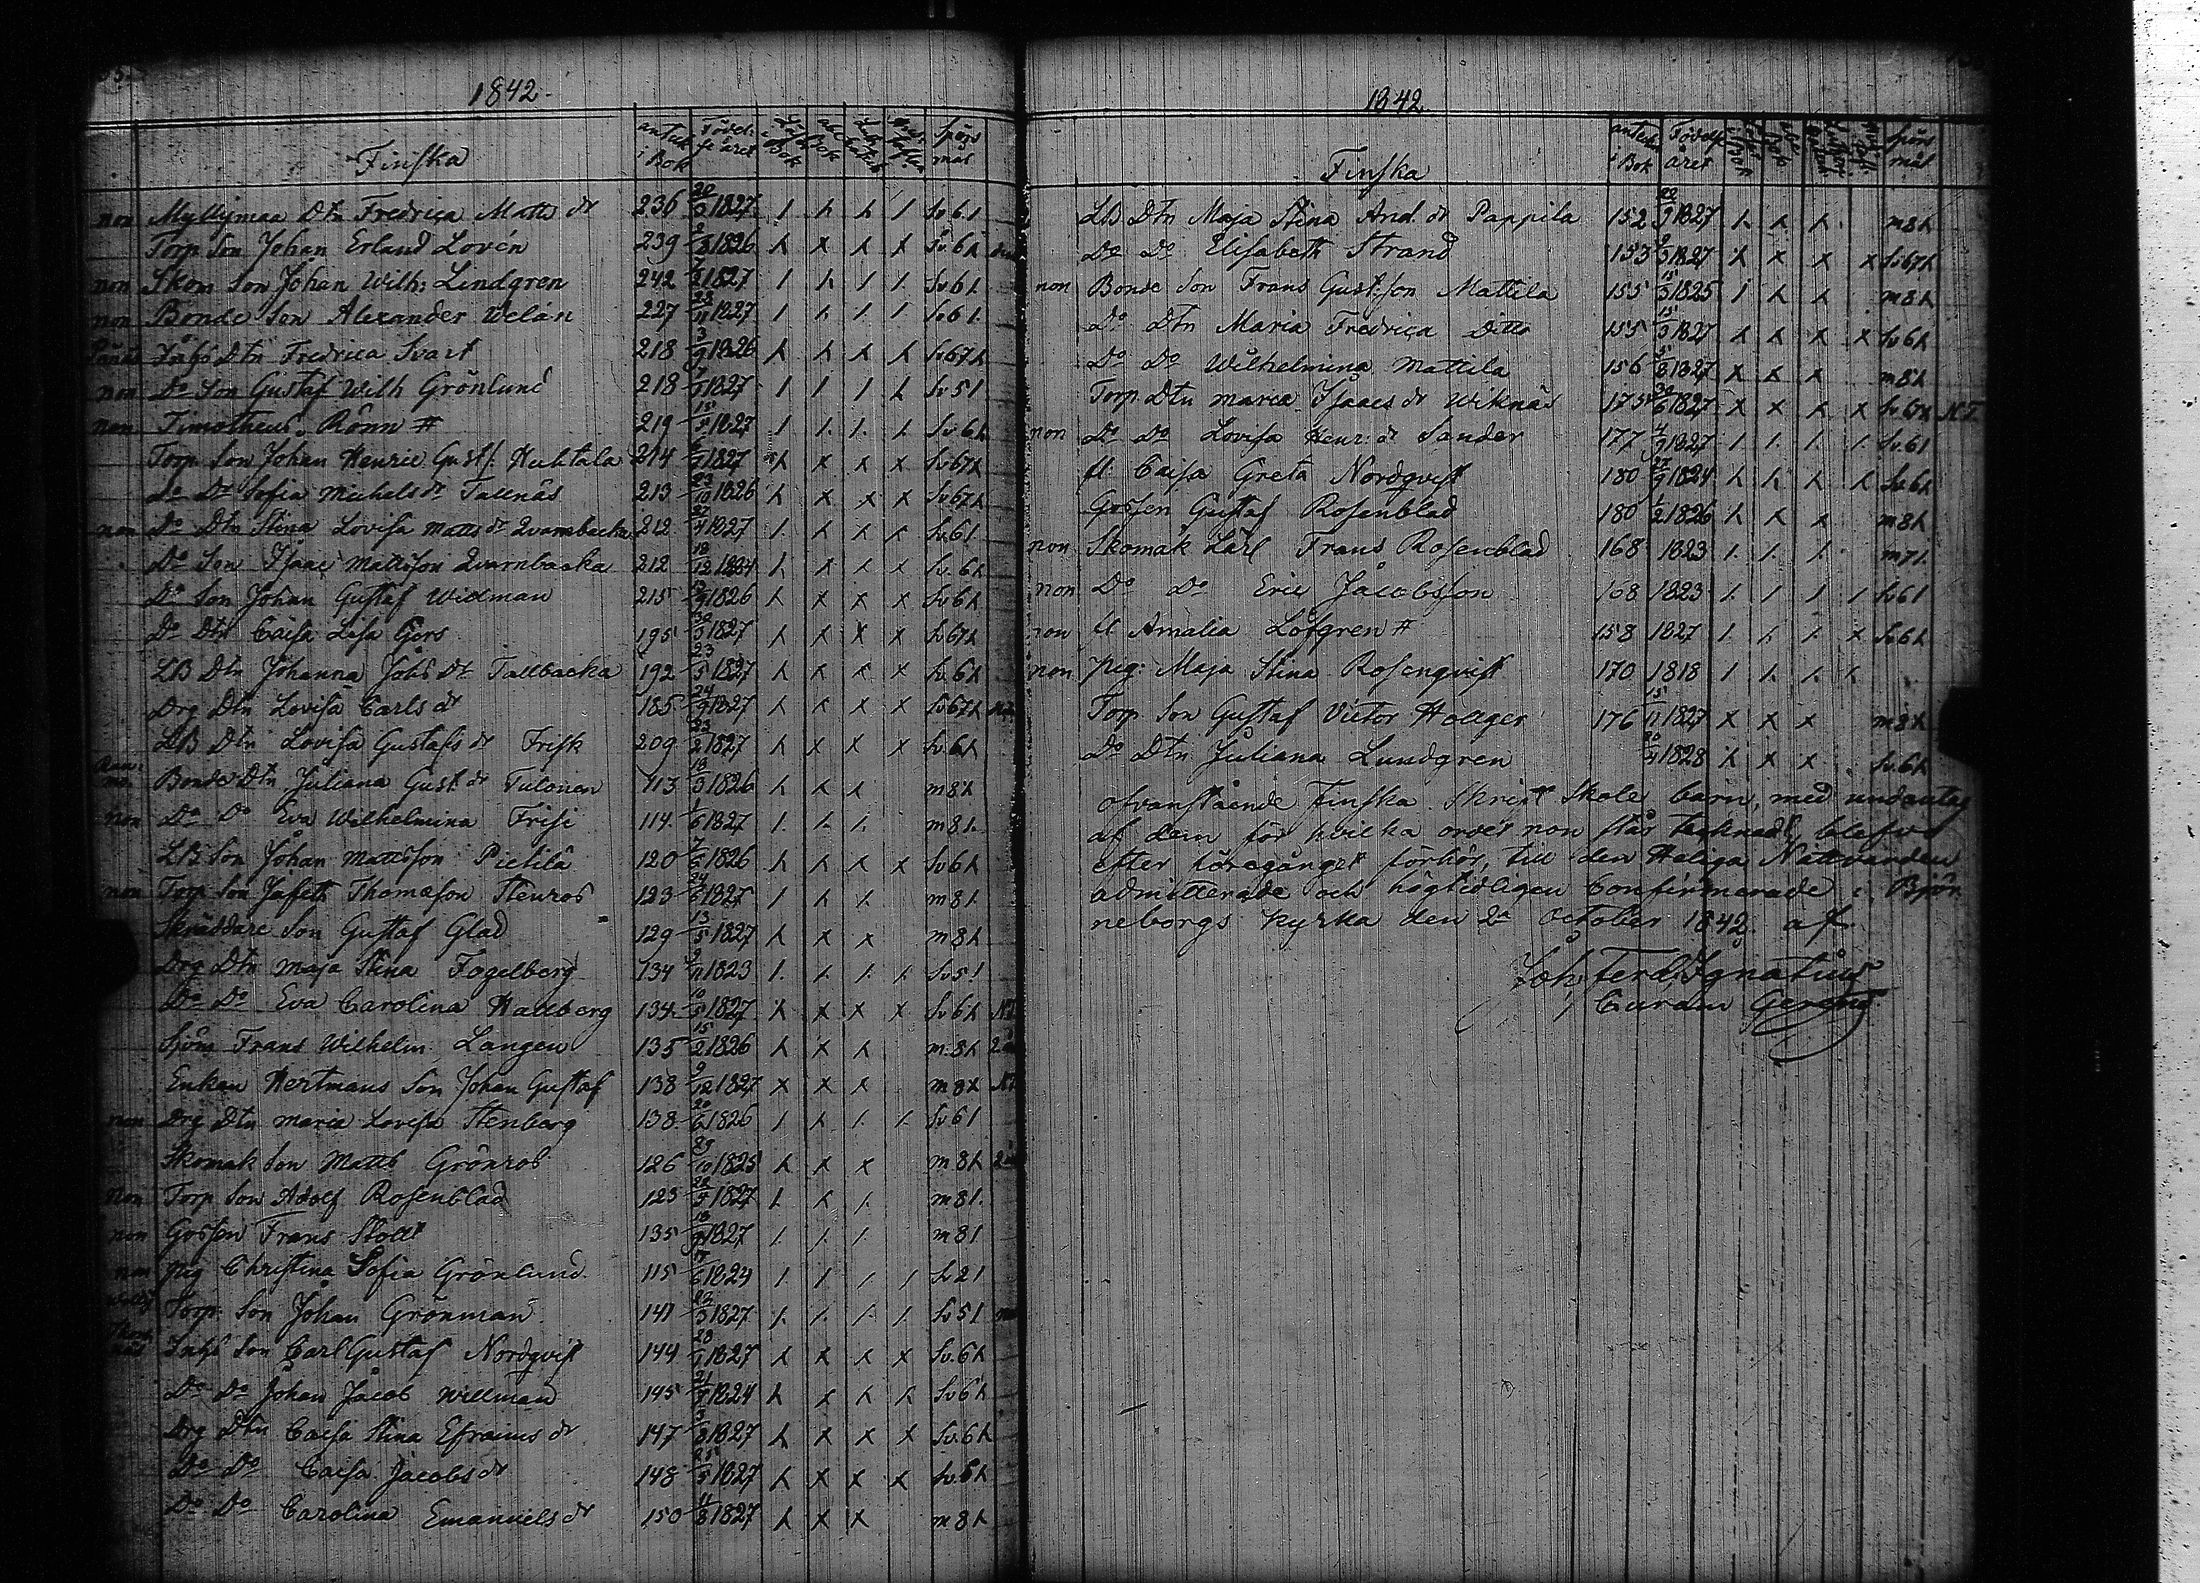 1842.
Finska
antek i Bok Födelse året Läsn i Bok abc Bok Spörs mål
non Myllymaa Dtn Fredrica Matts dr 236 20/3 1827 Sv 6 1
Torp Son Johan Erland Lovén 239 2/8 1826 Sv 6 h
non Skom Son Johan Wilh: Lindgren 242 1827 Sv 6 1
non Bonde Son Alexander Welán 227 23/11 1827 Sv 6 1
Inhs Dtn Fredrica Svart 218 3/9 1826 Sv 6 7 h
non Do Son Gustaf Wilh Grönlund 218 1827 Sv 5 1
non Timotheus Rönn # 219 15/5 1827 Sv 6 h
Torp Son Johan Henric Gustf. Huhtala 214 1827 Sv 6 7 h
Do Dr Sofia Michels dr Tallnäs 213 23/10 1826 Sv 6 7 h
non Do Dtn Stina Lovisa Matts dr Qvarnbacka 212 27/4 1827 Sv 6 1
Do Son Isaac Mattsson Qvarnbacka 212 18/12 1824 Sv. 6 h
Do Son Johan Gustaf Widman 215 1826 Sv 6 h
Do Dtn Caisa Lisa Gers 195 30/3 1827 Sv 6 7 h
LB Dtn Johanna Johs Dr Tallbacka 192 23/5 1827 Sv 6 h
Drg Dtn Lovisa Carls dr 185 24/9 1827 Sv 6 7 h
LB Dtn Lovisa Gustafs dr Frisk 209 23/2 1827 Sv. 6 h
Bonde Dtn Juliana Gust. dr Tulonen 113 18/3 1826 m 8 h
non Do Do Eva Wilhelmina Frisi 114 1/6 1827 m 8 1.
LB Son Johan Mattsson Pietilä 120 1826 Sv 6 h
non Torp Son Jafeth Thomasson Stenros 123 24/6 1827 m 8 1
Skräddare Son Gustaf Glad 129 13/5 1827 m 8 h
Drg Dtn Maja Stina Fogelberg 134 1823 Sv 5 1
Do Do Eva Carolina Hallberg 134 10/5 1827 Sv 6 h N.T.
Spöm Frans Wilhelm Langen 135 15/2 1826 m. 8 h
Enkan Hertmans Son Johan Gustaf 138 9/12 1827 m 8 h
non Drg Dtn Maria Lovisa Stenberg 138 20/6 1826 Sv 6 1
Skomak Son Matts Grönros 126 29/10 1825 m 8 h
non Torp Son Adolf Rosenblad 123 22/4 1827 m 8 1.
non Gossen Frans Stolt 135 18/9 1827 m 8 1
non Pig Christina Sofia Grönlund 115 1824 Sv 2 1
Torp Son Johan Grönman 141 22/3 1827 Sv 5 1
Inhs Son Carl Gustaf Nordqvist 144 28/1 1827 Sv. 6 h
Do Do Johan Jacob Willman 145 21/9 1824 Sv 6 h
Drg Dtn Caisa Stina Efraims dr 147 3/2 1827 Sv. 6 h
Do Do Caisa Jacobs dr 148 25/5 1827 Sv. 6 h
Do Do Carolina Emanuels dr 150 11/8 1827 m 8 h
1842.
Finska
antek i Bok Födelse året Spörs mål
LB Dtn Maja Stina And. dr Pappila 152 22/9 1827 m 8 h
Do Do Elisabeth Strand 153 1827 Sv 6 7 h
non Bonde Son Frans Gustfson Mattila 155 15/3 1825 m 8 h
Do Dtn Maria Fredrica Ditto 155 15/9 1827 Sv 6 h
Do Do Wilhelmina Mattila 156 5/8 1827 m 8 h
Torp Dtn Maria Isaacs dr Wiknäs 175 30/6 1827 Sv. 6 7 h N.T.
non Do Do Lovisa Henr: dr Sander 177 4/9 1827 Sv. 6 1
fl. Caisa Greta Nordqvist 180 27/9 1824 Sv. 6 h
Gossen Gustaf Rosenblad 180 1/2 1826 m 8 h
non Skomak Lärl Frans Rosenblad 168 1823 m 7 1.
non Do Do Eric Jacobsson 168 1823 Sv 6 1
non fl Amalia Löfgren # 158 1827 Sv. 6 h
non Pig: Maja Stina Rosenqvist 170 1818
Torp Son Gustaf Victor Hollger 176 15/11 1827 m 8 h
Do Dtn Juliana Lundgren 20/4 1828 Sv. 6 h
ofvanstående Finska Skrift Skole barn, med undantag
af dem för hvilka ordet non står tecknadt, blefvo
efter föregånget förhör, till den Heliga Nattvarden
admitterade och högtidligen Confirmerade i Björ
neborgs kyrka den 2a October 1842. af
Joh. Ferd. Ignatius
Curam Gerens